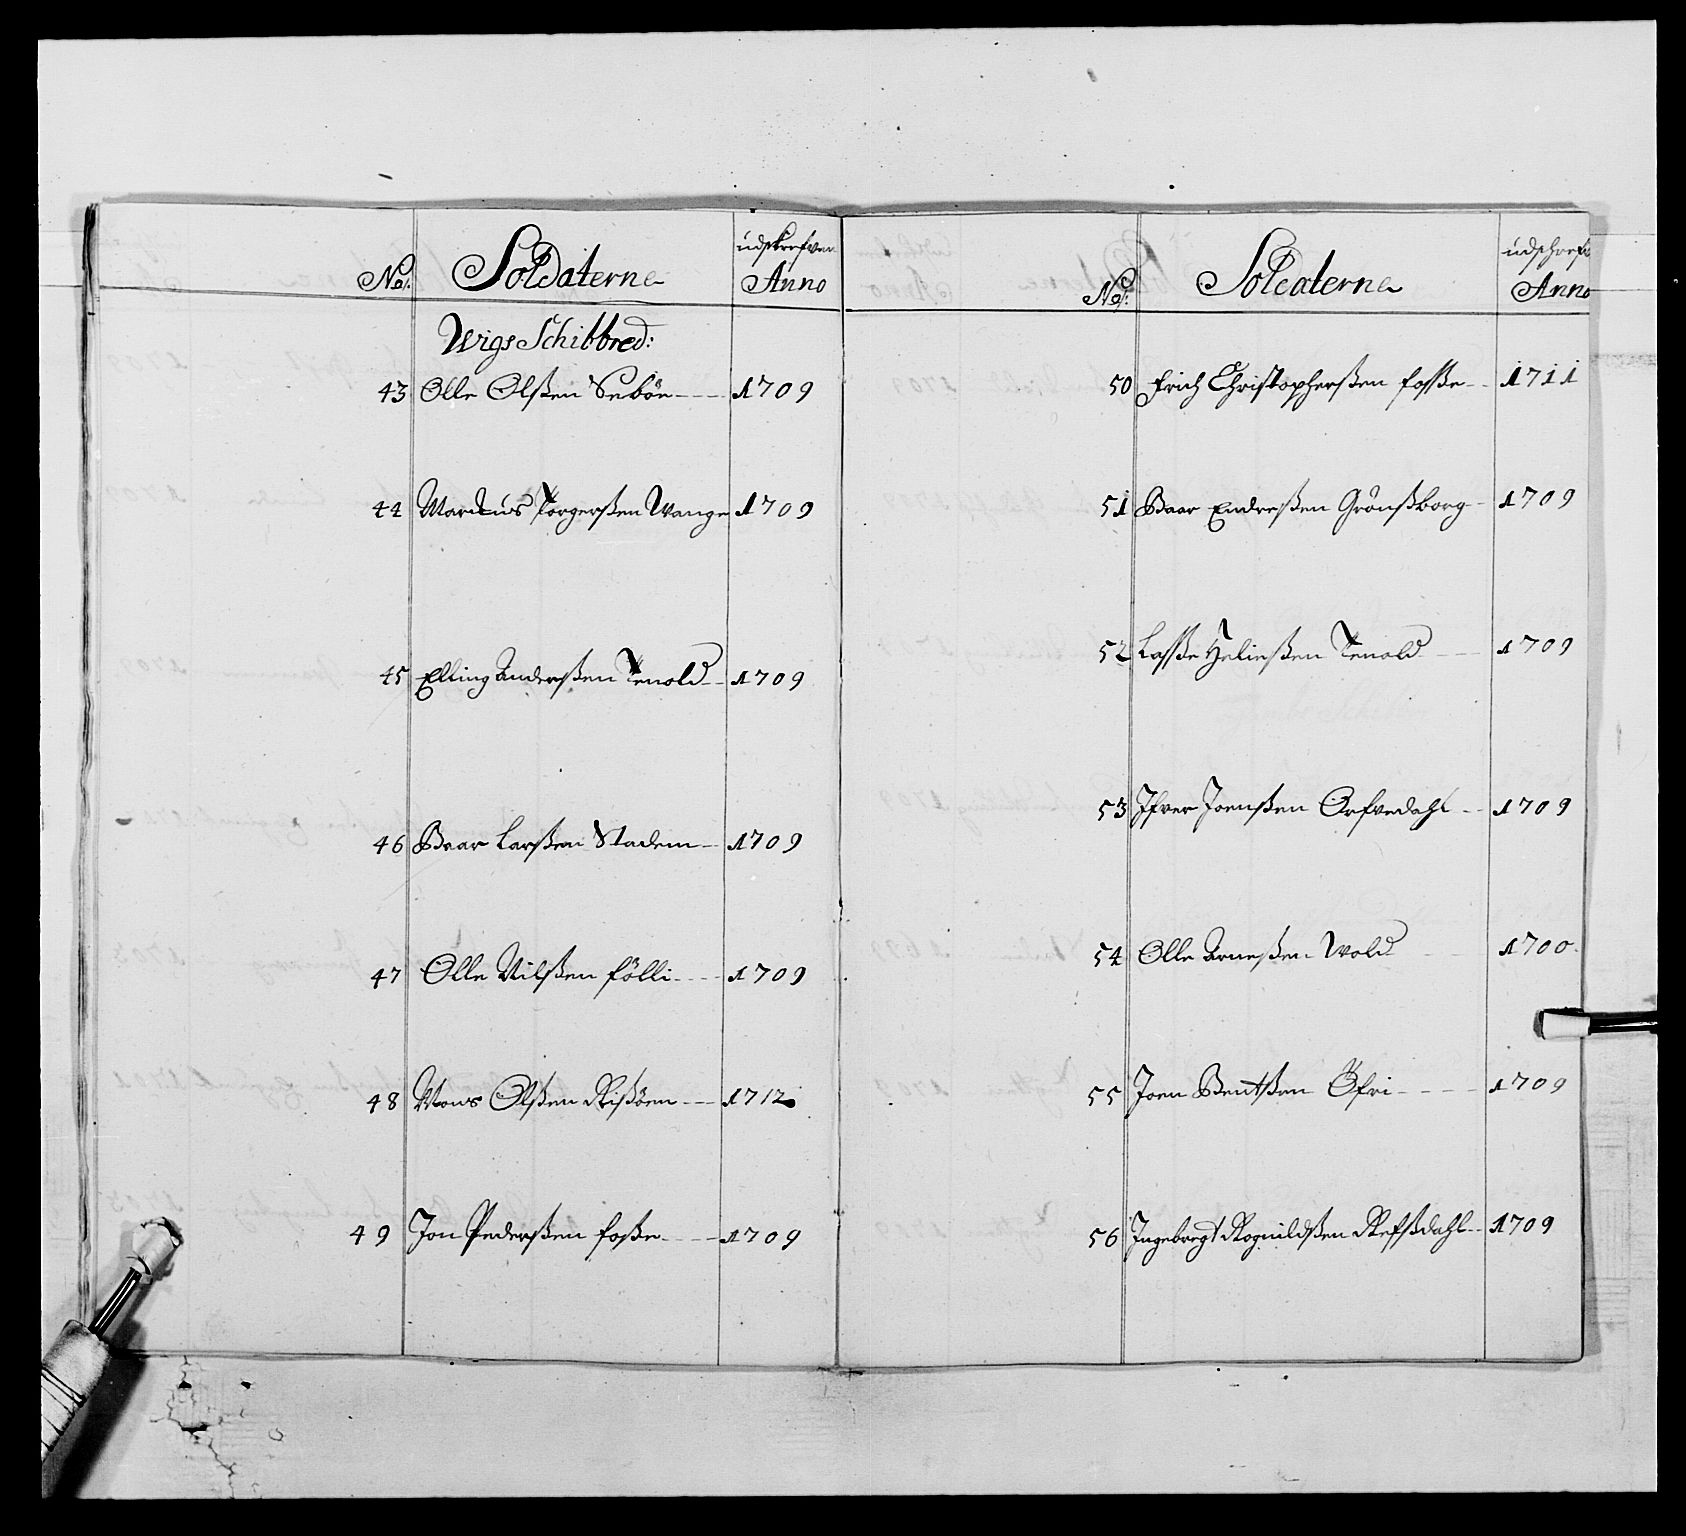 No: Soldaterne udskrefven Anno
Wigs Schibbred:
43 Olle Olßen Sebøe 1709
44 Marckus Torgerßen Wange 1709
45 Elling Anderßen Tenold 1709
46 Baar Larßen Stadem 1709
47 Olle Nilßen fölli 1709
48 Mons Olßen Rißöen 1712
49 Jon Pederßen foße 1709
No: Soldaterne udschrefv Anno
50 Erich Christopherßen foßße 1711
51 Baar Endreßen Grönßborg 1709
52 Laßße Heließen Tenold 1709
53 Ifver Joenßen Orfvedahl 1709
54 Olle Arneßen Wold 1700
55 Joen Bentßen Öfri 1709
56 Ingebregt Rognildßen Refßdahl 1709